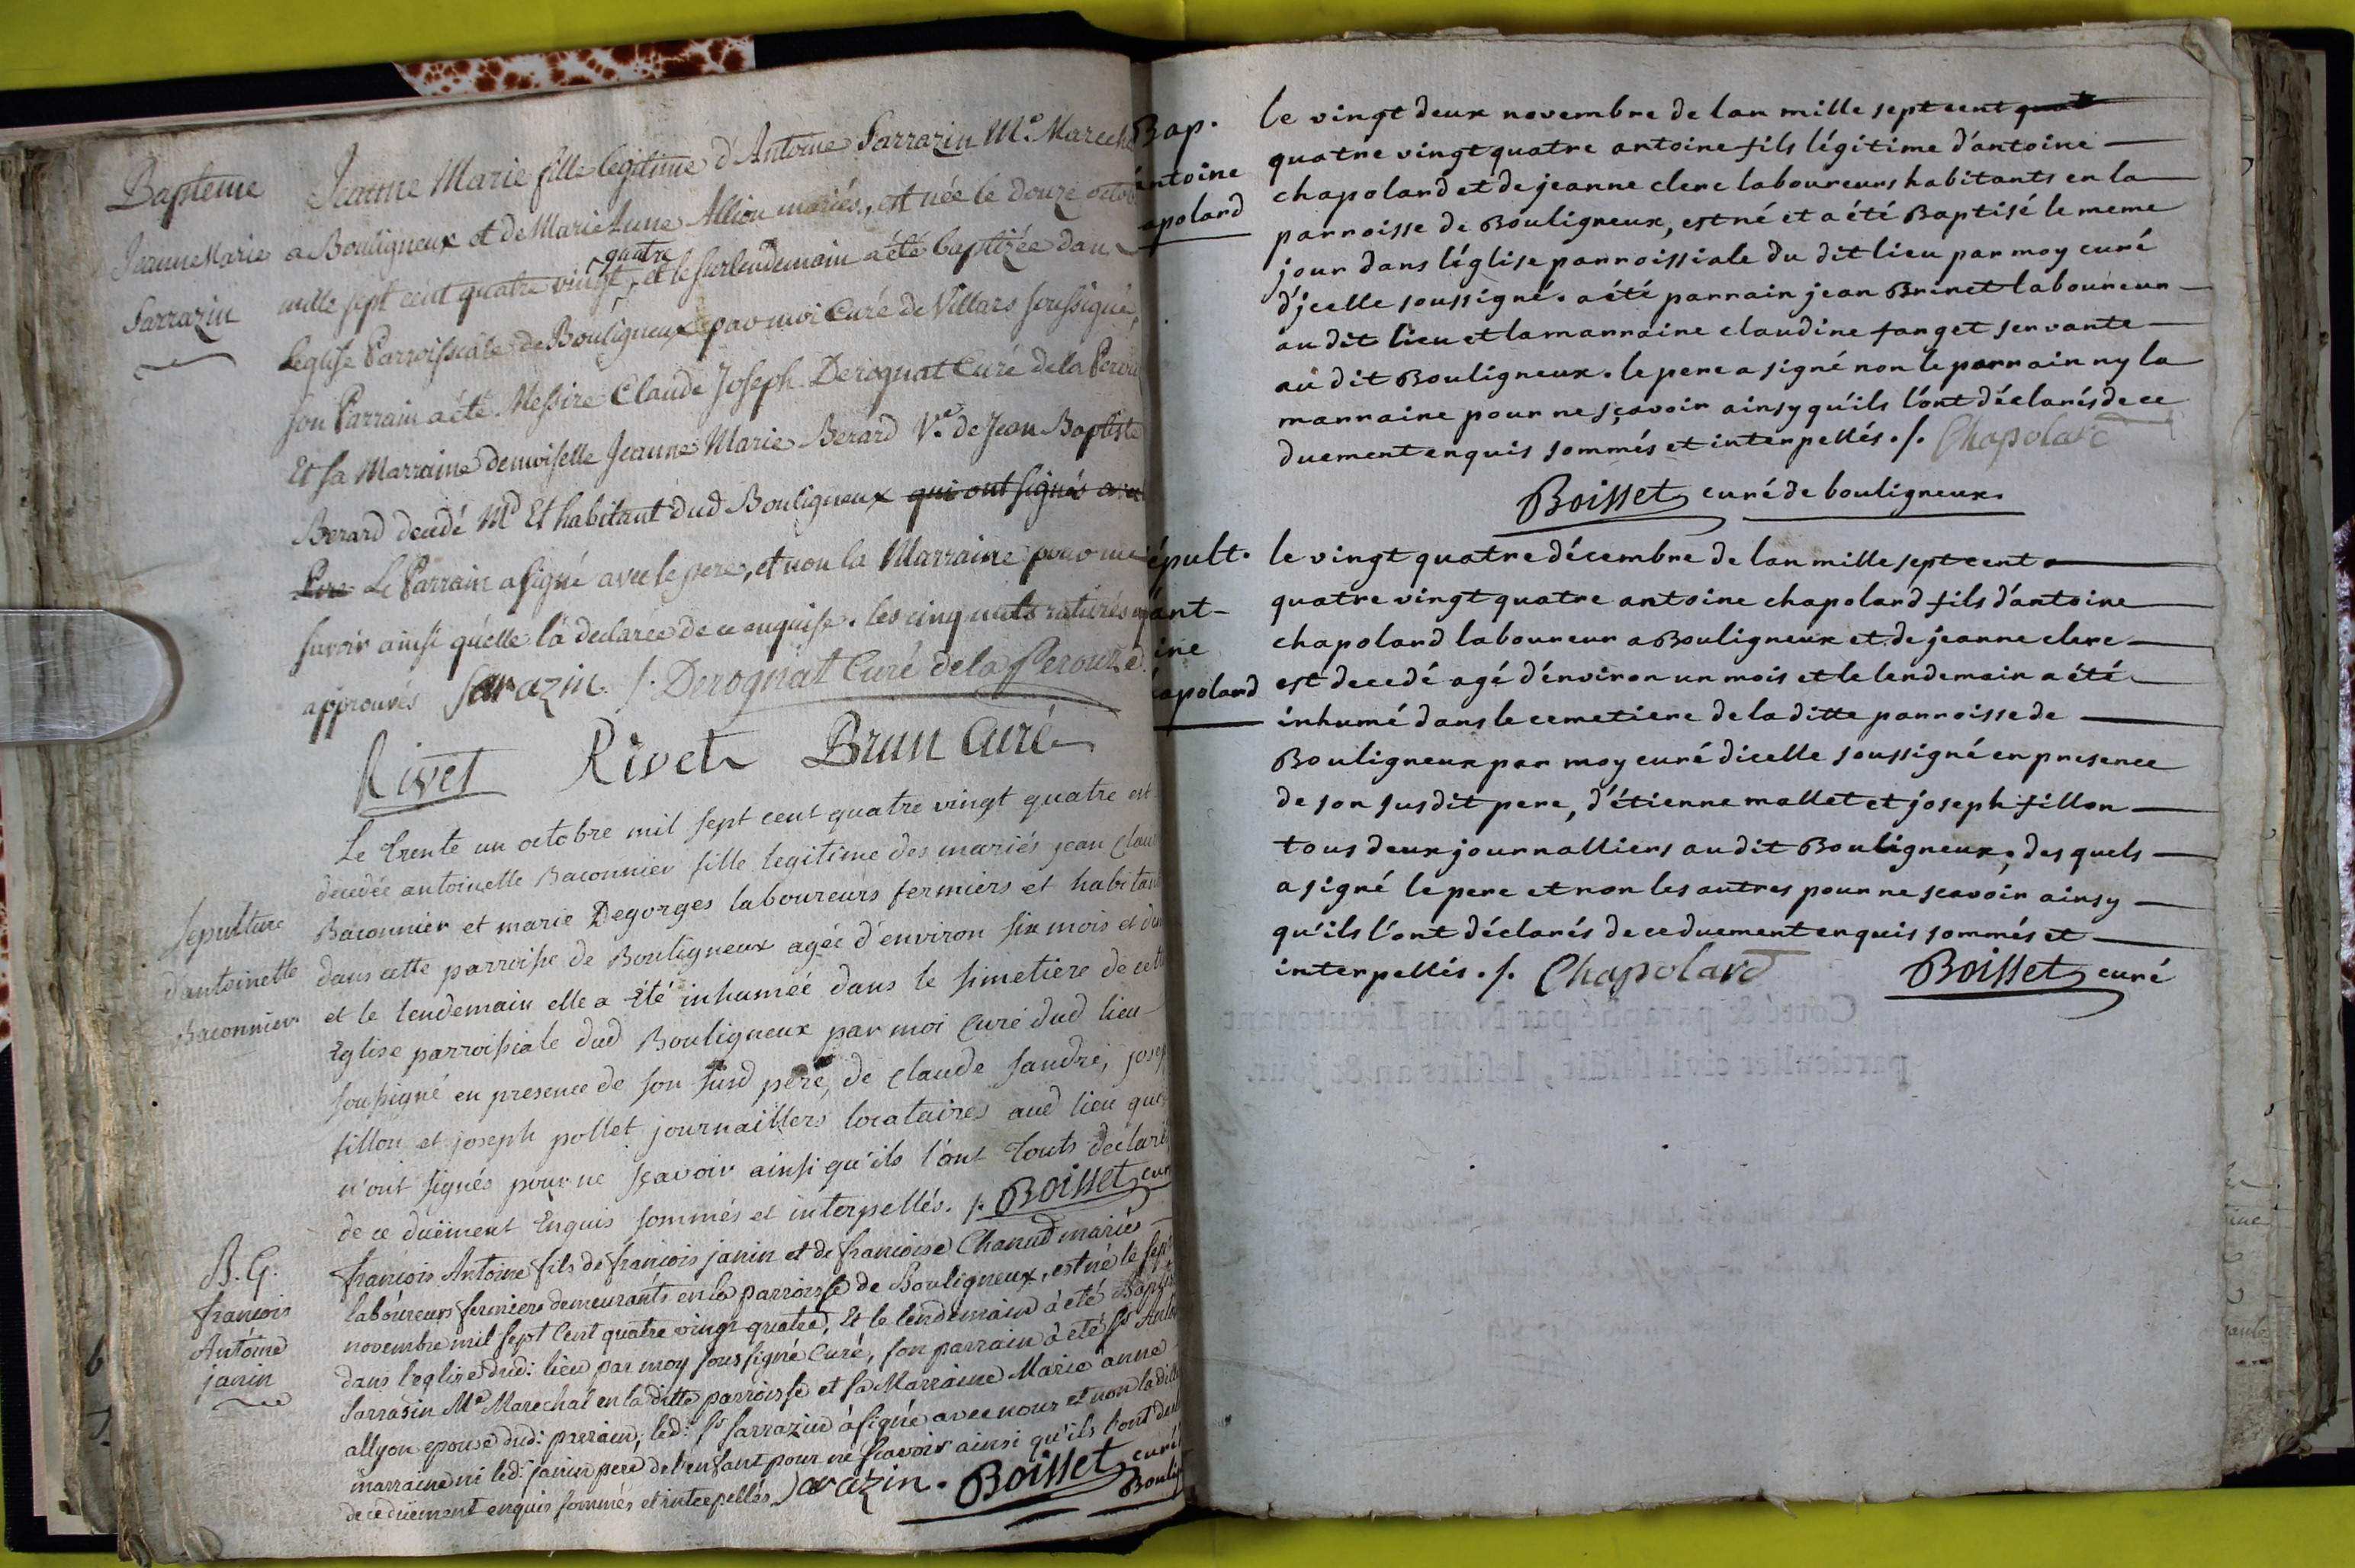 Bapteme
Jeanne Marie
Sarrazin
Jeanne Marie fille legitime d'Antoine Sarrazin Me. Marecha
a Bouligneux et de Marie Anne Allion mariés, est née le douze octob
quatre
mille sept cent quatre vingt, et le surlendemain a été baptizée dan
Leglise Parroissiale de Bouligneux par moi Curé de Villars soussigné,
son Parrain a été Messire Claude Joseph Derognat Curé de la Perou
Et sa Marraine demoiselle Jeanne Marie Berard Ve. de Jean Baptiste
Berard decedé Md Et habitant dud Bouligneux qui ont signés avec
Pere Le Parrain a signé avec le pere, et non la Marraine pour ne
savoir ainsi qu'elle l'a declarée de ce enquise. les cinq mots raturés
approuvés Sarazin ./. Derognat Curé dela Perouze
Rivet Rivet Brun Curé
Sepulture
d'antoinette
Baconnier
Le trente un octobre mil sept cent quatre vingt quatre est
decedée antoinette Baconnier fille legitime des mariés jean Clau
Baconnier et marie Degorges laboureurs fermiers et habitant
dans cette parroisse de Bouligneux agée d'environ six mois et
et le lendemain elle a été inhumée dans le simetiere de cett
Eglise parroissiale dud Bouligneux par moi Curé dud lieu
soussigné en presence de son susd pere, de claude sandre, josep
fillon et joseph pollet journailliers locataires aud lieu qui
n'ont signés pour ne sçavoir ainsi qu'ils l'ont touts declaré
de ce duëment Enquis sommés et interpellés. ./. Boisset cur
B. G.
francois
Antoine
janin
françois Antoine fils de françois janin et de francoise Chanud mariés
laboureurs fermiers demeurants en la parroisse de Bouligneux, est né le sept
novembre mil sept Cent quatre vingt quatre, Et le lendemain à eté Bapti
dans leglise dud: lieu par moy soussigné Curé, son parrain à eté sr Anto
Sarrasin Me Marechal en la ditte parroisse et sa Marraine Marie anne
allyon epouse dud: parrain; led: sr sarrazin à signé avec nous et non la ditte
marraine ni led: janin pere de l'enfant pour ne scavoir ainsi qu'ils l'ont
de ce duëment enquis sommés et interpellés Sarazin. Boisset curé
Boulig
Bap.
antoine
apolard
le vingt deux novembre de lan mille sept cent quat
quatre vingt quatre antoine fils légitime d'antoine
chapolard et de jeanne clerc laboureurs habitants en la
parroisse de Bouligneux, est né et a été Baptisé le meme
jour dans l'église parroissiale du dit lieu par moy curé
d'jcelle soussigné. a été parrain jean Brinet laboureur
au dit lieu et la marraine claudine fanget servante
au dit Bouligneux. le pere a signé non le parrain ny la
marraine pour ne sçavoir ainsy qu'ils l'ont déclarés de ce
duement enquis sommés et interpellés ./. Chapolard
Boisset curé de bouligneux.
épult.
ant-
ine
apolard
le vingt quatre décembre de lan mille sept cent
quatre vingt quatre antoine chapolard fils d'antoine
chapolard laboureur a Bouligneux et de jeanne clerc
est decedé agé d'environ un mois et le lendemain a été
inhumé dans le cemetiere de la ditte parroisse de
Bouligneux par moy curé dicelle soussigné en presence
de son susdit pere, d'étienne mallet et joseph fillon
tous deux journalliers au dit Bouligneux, des quels
a signé le pere et non les autres pour ne scavoir ainsy
qu'ils l'ont déclarés de ce duement enquis sommés et
interpellés ./. Chapolard Boisset curé